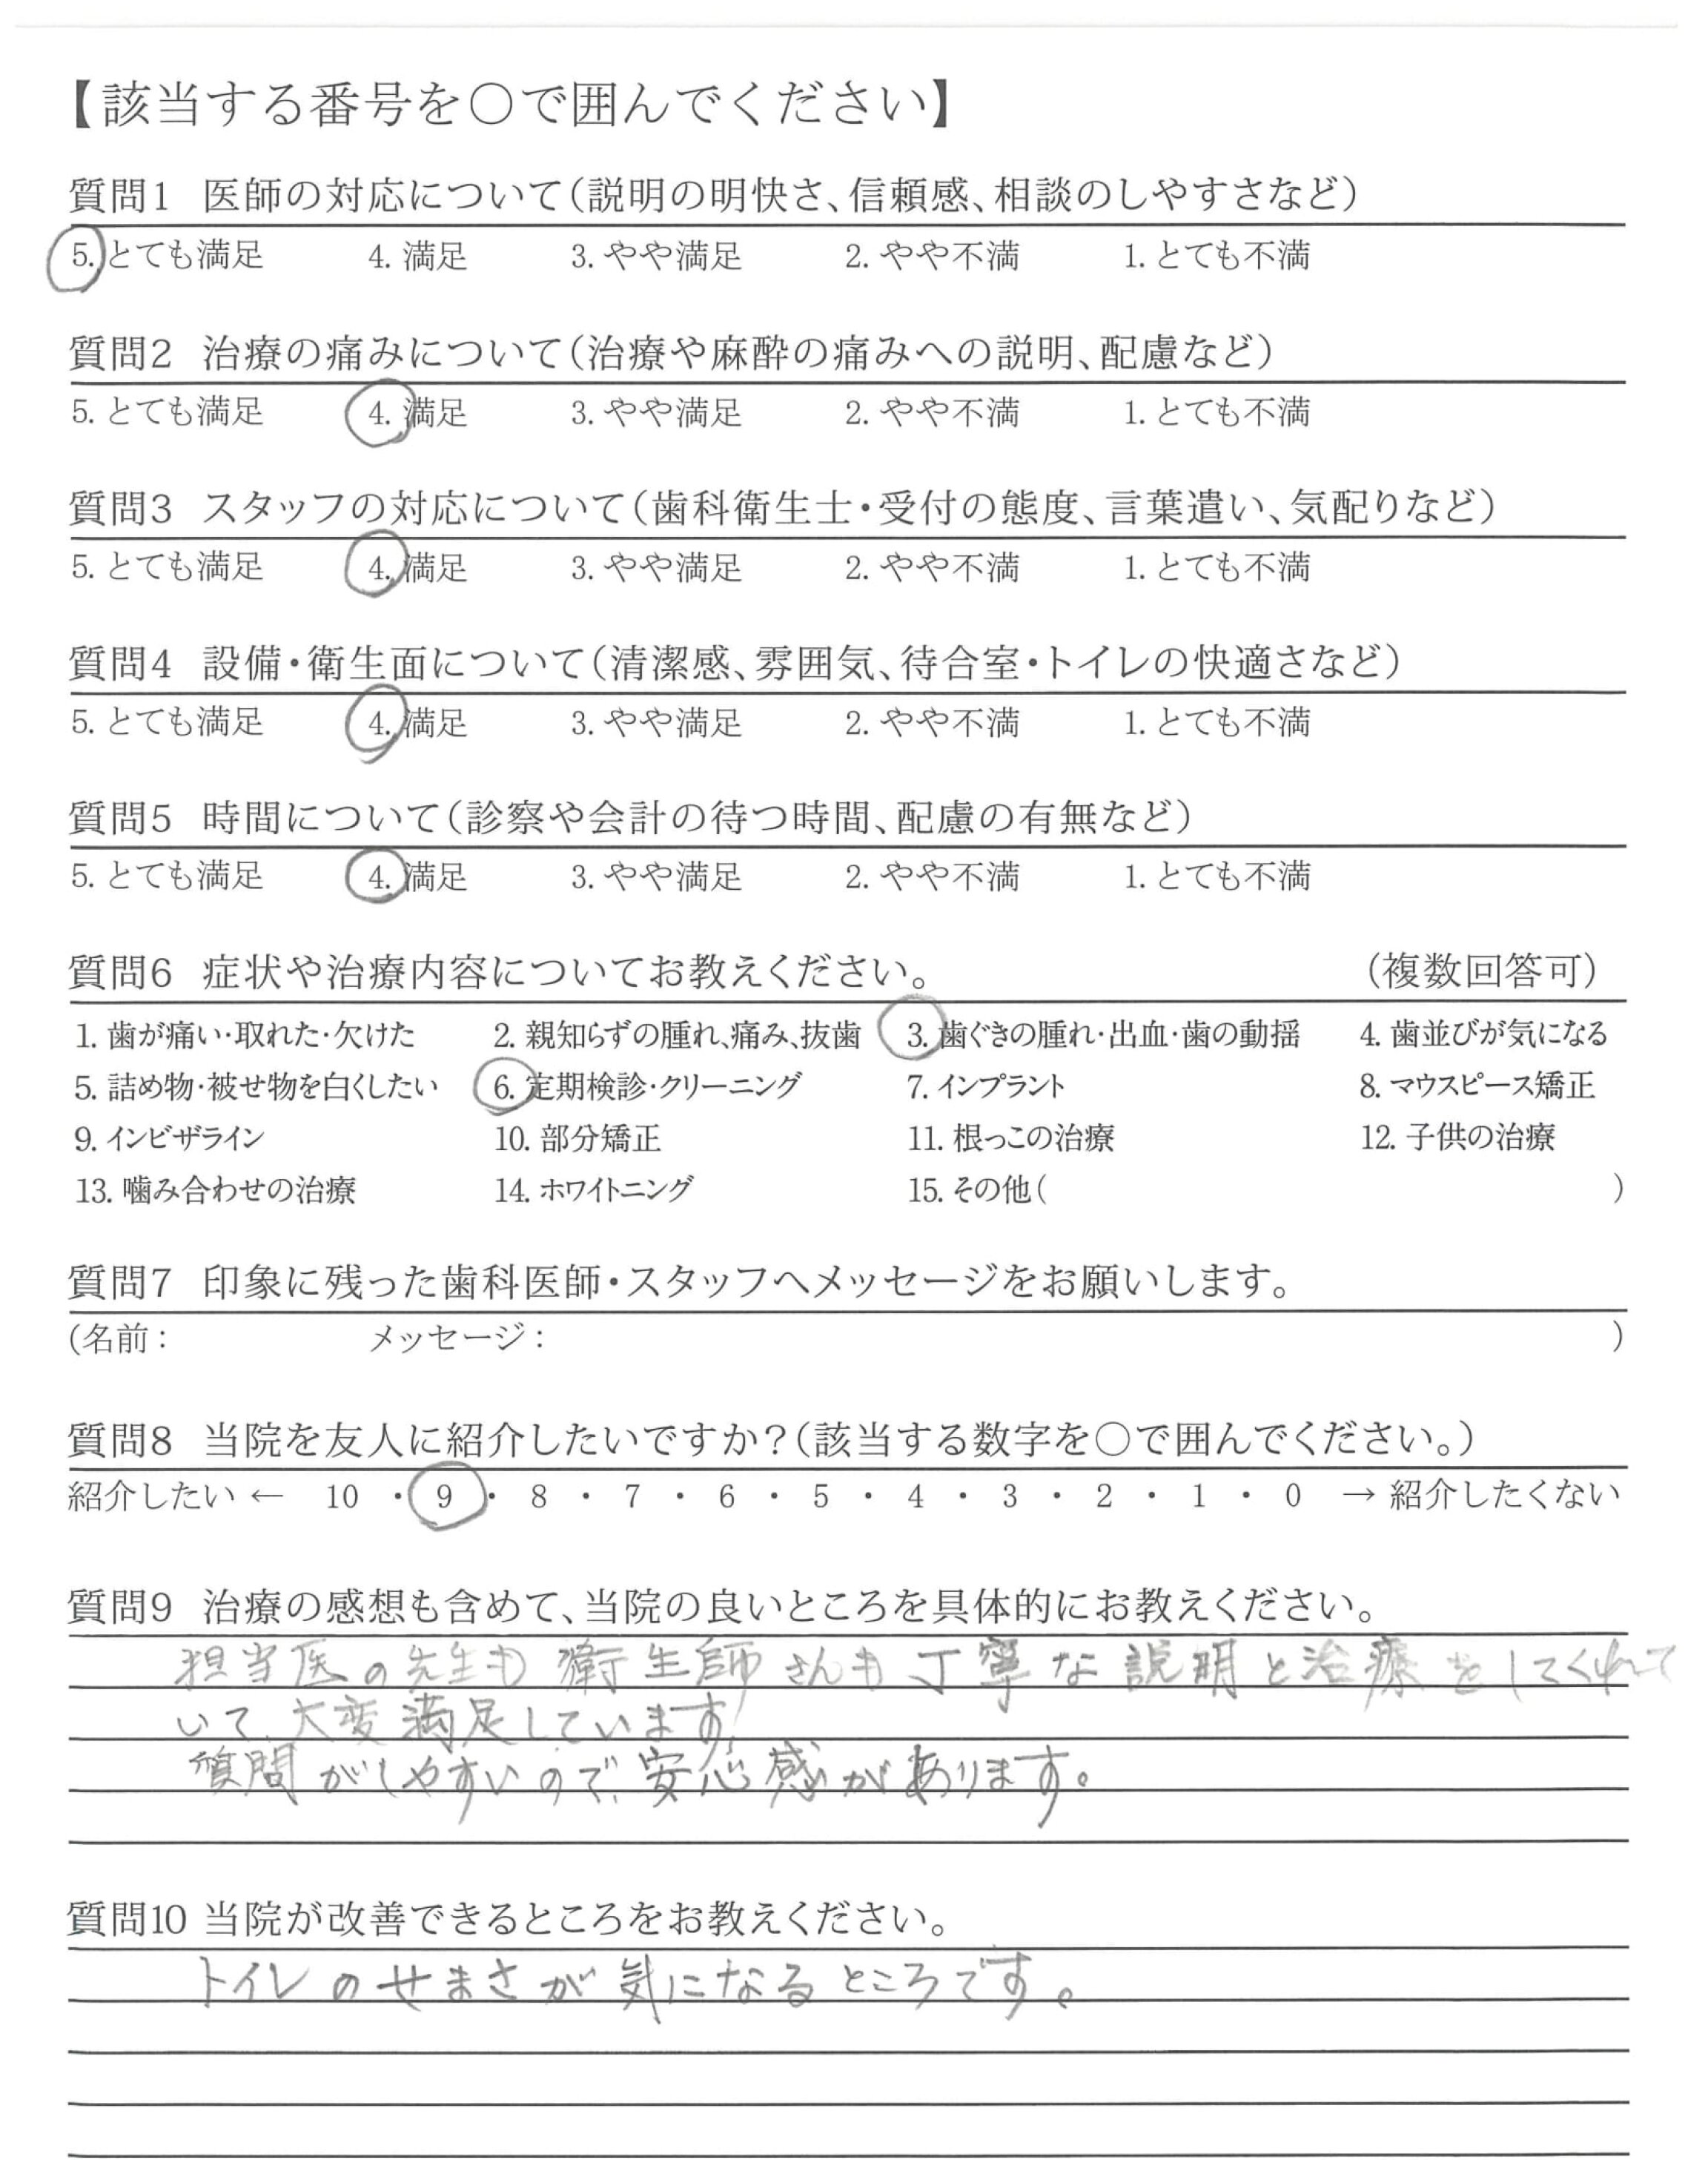 【該当する番号を〇で囲んでください】
質問1 医師の対応について(説明の明快さ、信頼感、相談のしやすさなど)
5. とても満足 4. 満足 3. やや満足 2. やや不満 1. とても不満
質問2 治療の痛みについて(治療や麻酔の痛みへの説明、配慮など)
5. とても満足 4. 満足 3. やや満足 2. やや不満 1. とても不満
質問3 スタッフの対応について(歯科衛生士・受付の態度、言葉遣い、気配りなど)
5. とても満足 4. 満足 3. やや満足 2. やや不満 1. とても不満
質問4 設備・衛生面について(清潔感、雰囲気、待合室・トイレの快適さなど)
5. とても満足 4. 満足 3. やや満足 2. やや不満 1. とても不満
質問5 時間について(診察や会計の待つ時間、配慮の有無など)
5. とても満足 4. 満足 3. やや満足 2. やや不満 1. とても不満
質問6 症状や治療内容についてお教えください。 (複数回答可)
1. 歯が痛い・取れた・欠けた 2. 親知らずの腫れ、痛み、抜歯 3. 歯ぐきの腫れ・出血・歯の動揺 4. 歯並びが気になる
5. 詰め物・被せ物を白くしたい 6. 定期検診・クリーニング 7. インプラント 8. マウスピース矯正
9. インビザライン 10. 部分矯正 11. 根っこの治療 12. 子供の治療
13. 噛み合わせの治療 14. ホワイトニング 15. その他( )
質問7 印象に残った歯科医師・スタッフへメッセージをお願いします。
(名前: メッセージ: )
質問8 当院を友人に紹介したいですか?(該当する数字を〇で囲んでください。)
紹介したい ← 10 ・ 9 ・ 8 ・ 7 ・ 6 ・ 5 ・ 4 ・ 3 ・ 2 ・ 1 ・ 0 → 紹介したくない
質問9 治療の感想も含めて、当院の良いところを具体的にお教えください。
担当医の先生も衛生師さんも丁寧な説明と治療をしてくれて
いて、大変満足しています。
質問がしやすいので、安心感があります。
質問10 当院が改善できるところをお教えください。
トイレのせまさが気になるところです。